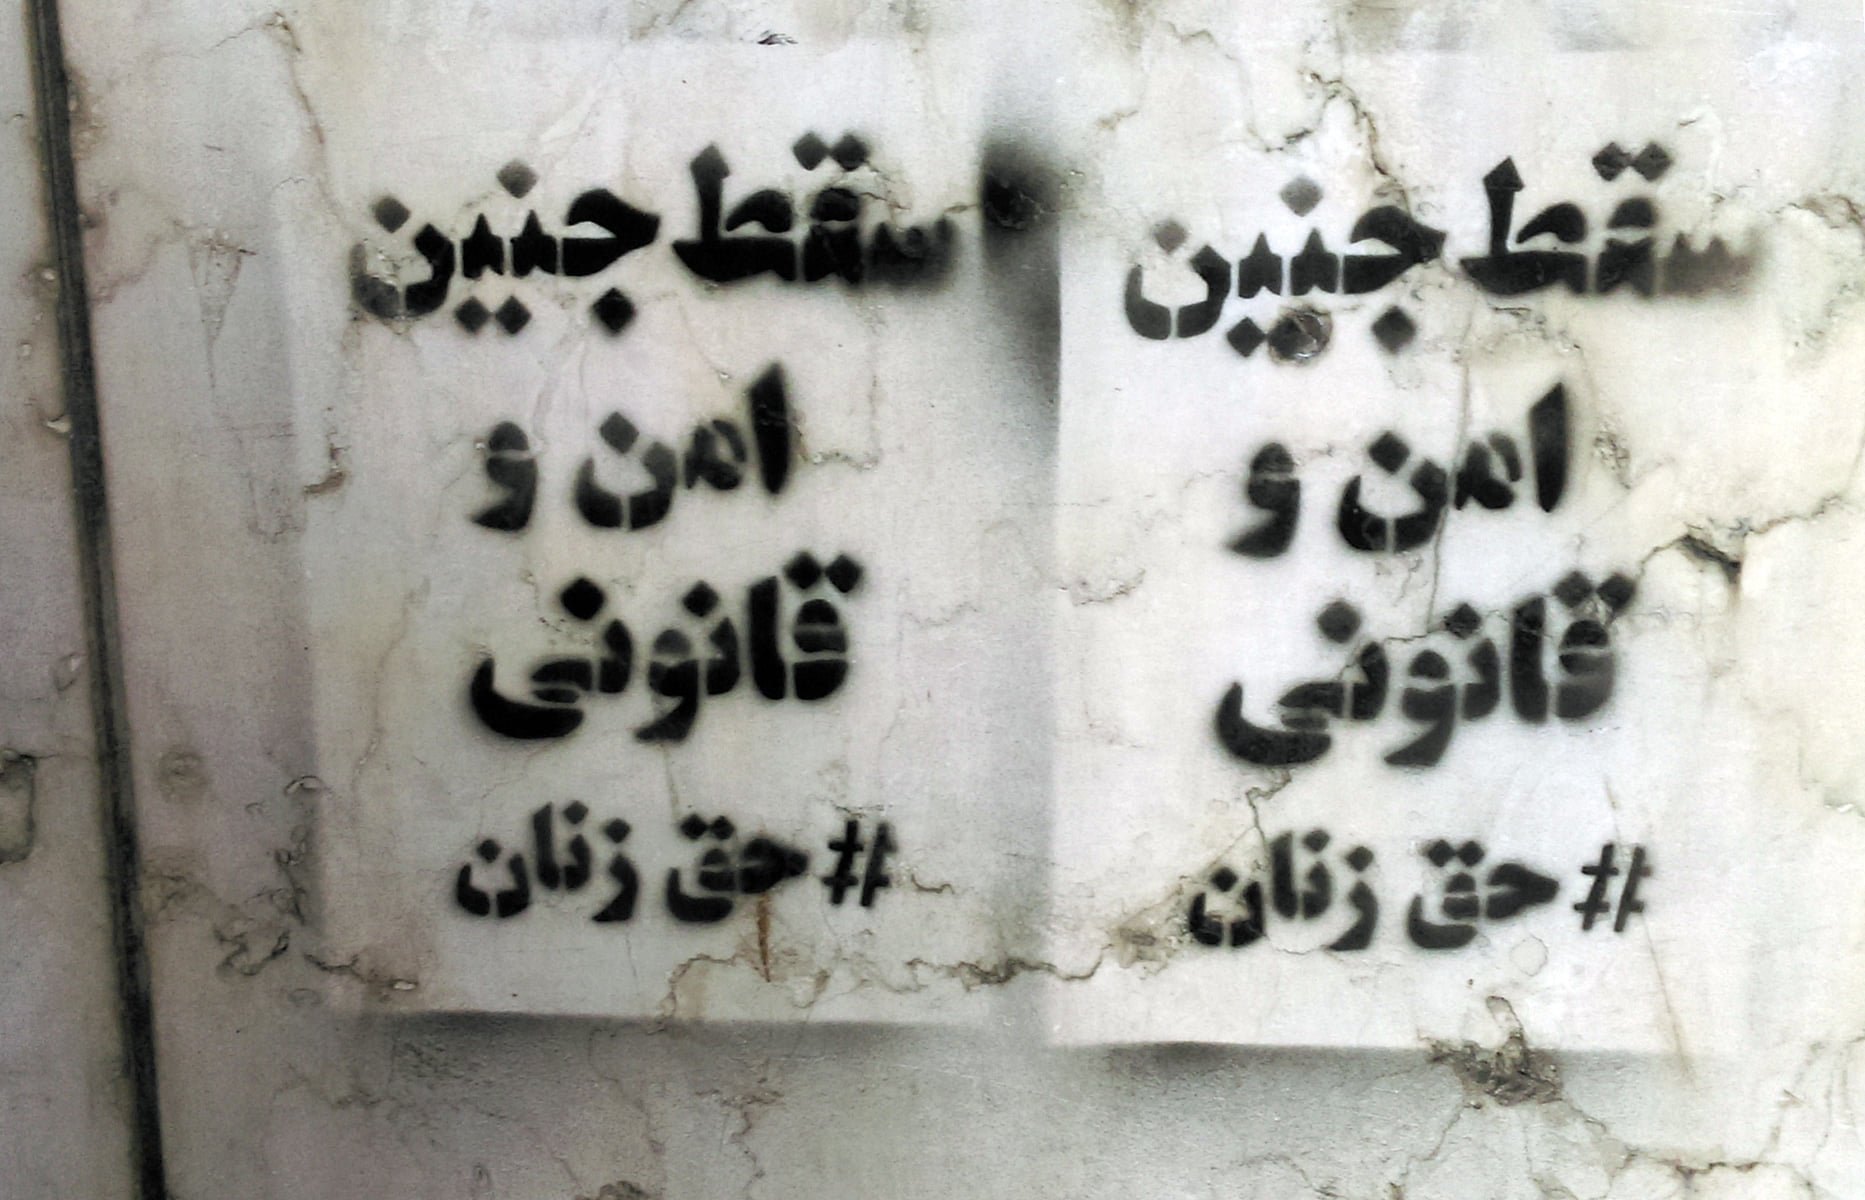 سقط جنین
امن و
قانونی
#حق زنان
سقط جنین
امن و
قانونی
#حق زنان